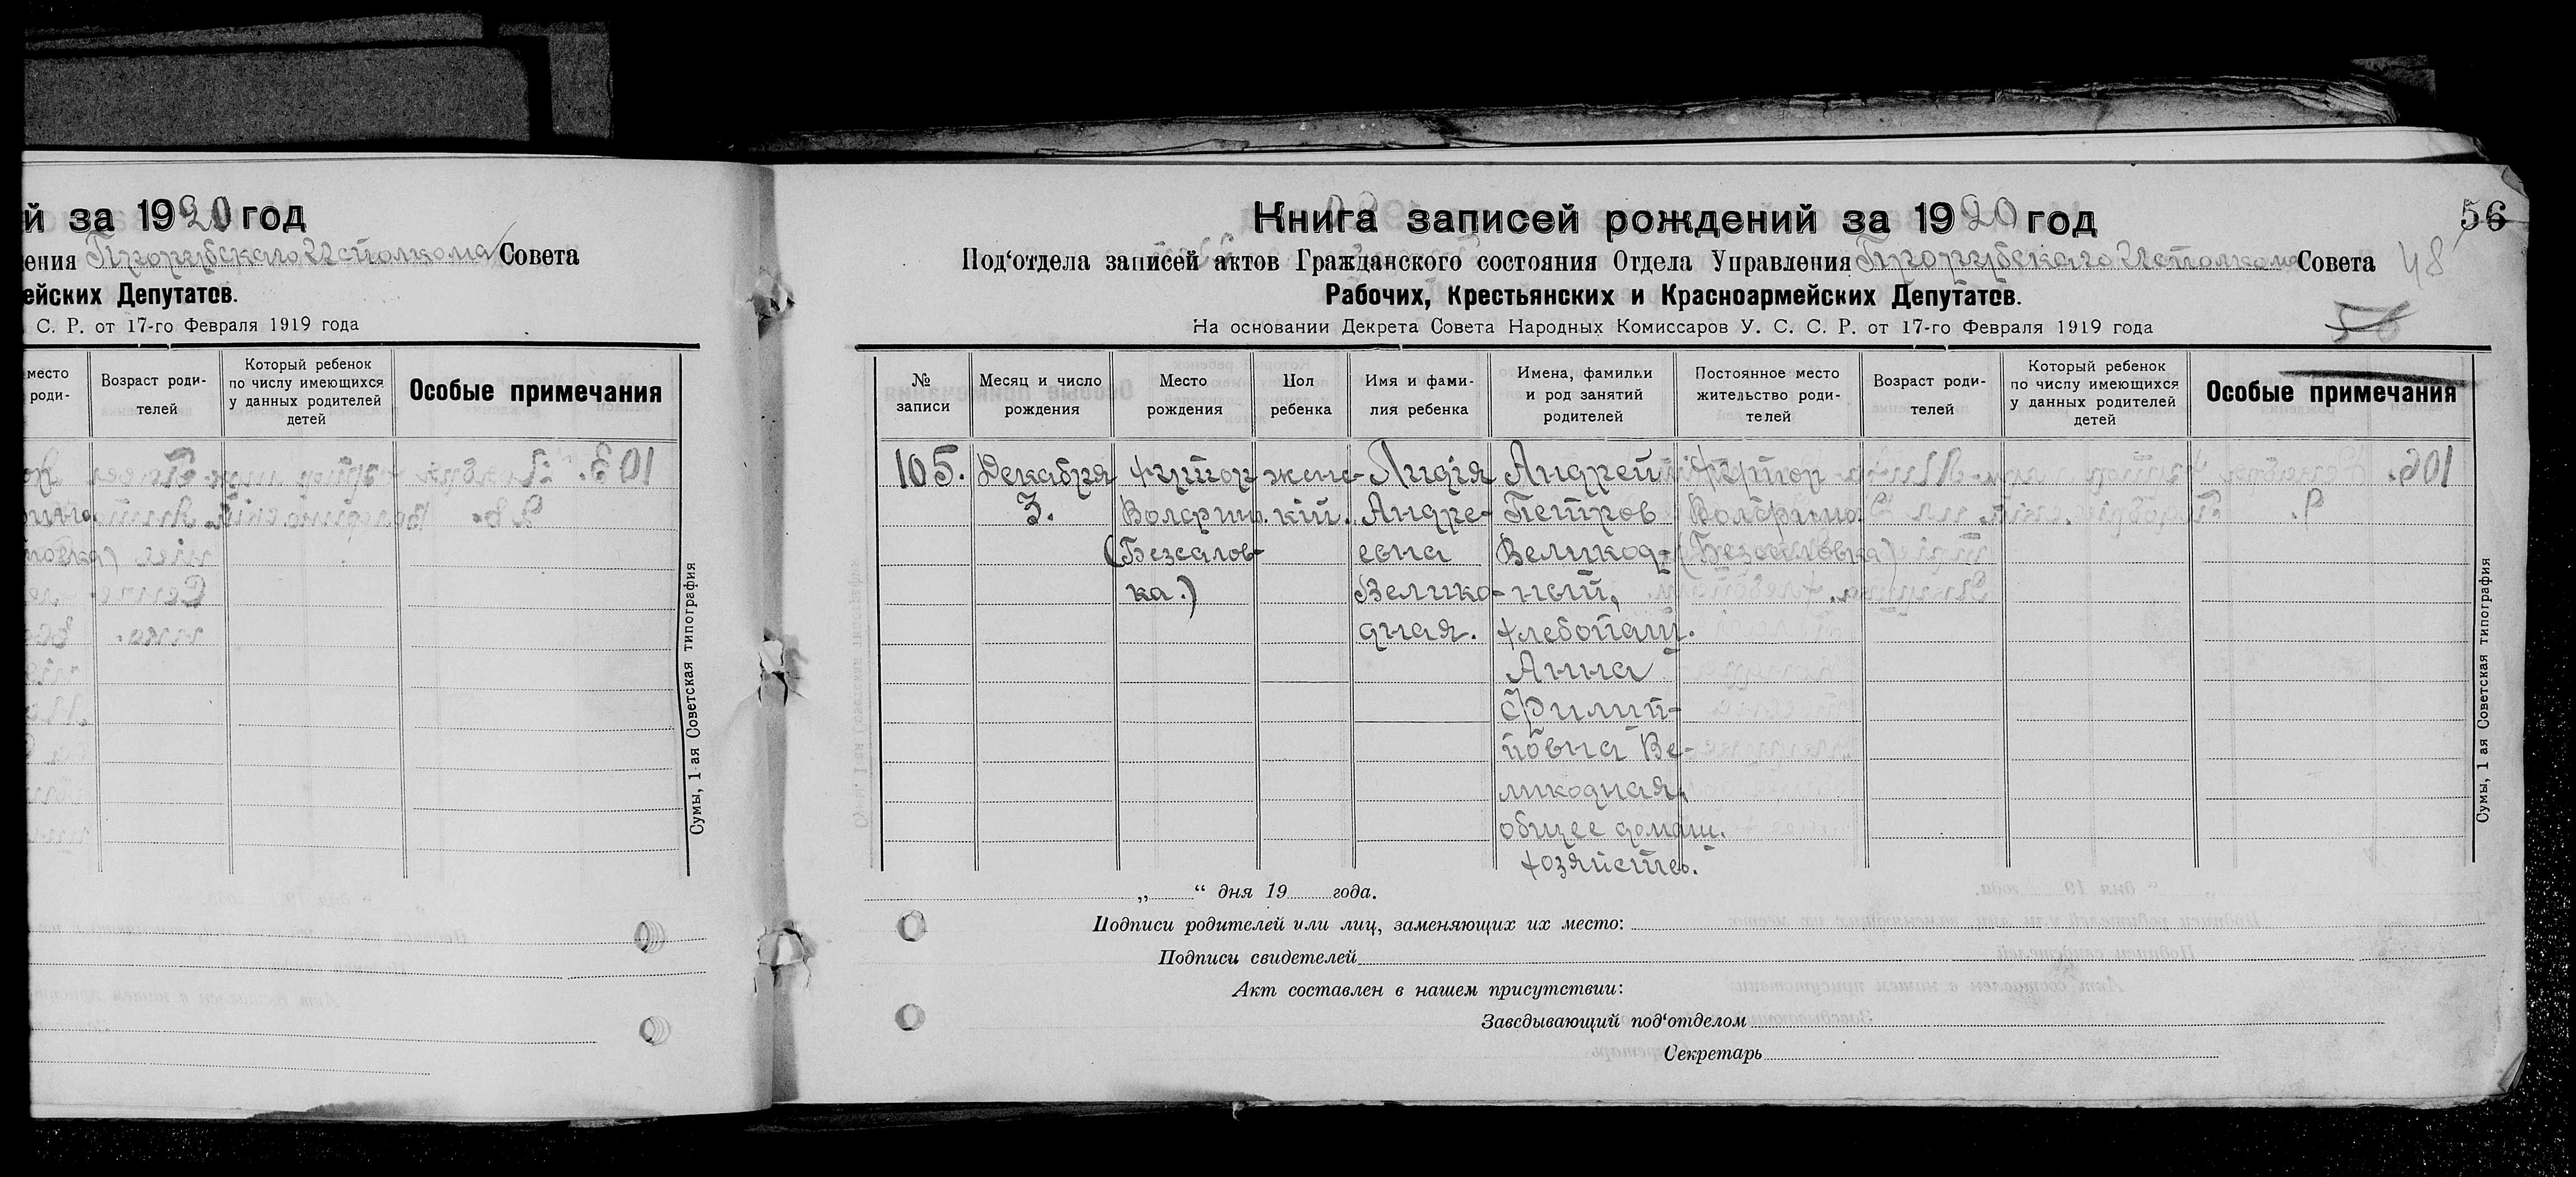 й за 1920 год
ения Прорубского Исполкома Совета
ейских Депутатов.
С. Р. от 17-го Февраля 1919 года
место
роди-
Возраст роди-
телей
Который ребенок
по числу имеющихся
у данных родителей
детей
Особые примечания
Сумы, 1-ая Советская типография
Книга записей рождений за 1920 год
56
Под‘отдела записей актов Гражданского состояния Отдела Управления Прорубского Исполкома Совета
48
Рабочих, Крестьянских и Красноармейских Депутатов.
На основании Декрета Совета Народных Комиссаров У. С. С. Р. от 17-го Февраля 1919 года
№
записи
Месяц и число
рождения
Место
рождения
Пол
ребенка
Имя и фами-
лия ребенка
Имена, фамилии
и род занятий
родителей
Постоянное место
жительство роди-
телей
Возраст роди-
телей
Который ребенок
по числу имеющихся
у данных родителей
детей
Особые примечания
105.
Декабря
3.
Хутор
(Безсалов-
ка.)
женс-
кій.
Лидія
Андре-
евна
Велико-
дная.
Андрей
Петров
Великод-
ный,
хлебопаш.
Анна
Филип-
повна Ве-
ликодная,
общее домаш.
хозяйство.
Хутор
(Безсаловка)
Сумы, 1 ая Советская типография
„ “ дня 19 года.
Подписи родителей или лиц, заменяющих их место:
Подписи свидетелей
Акт составлен в нашем присутствии:
Заведывающий под‘отделом
Секретарь